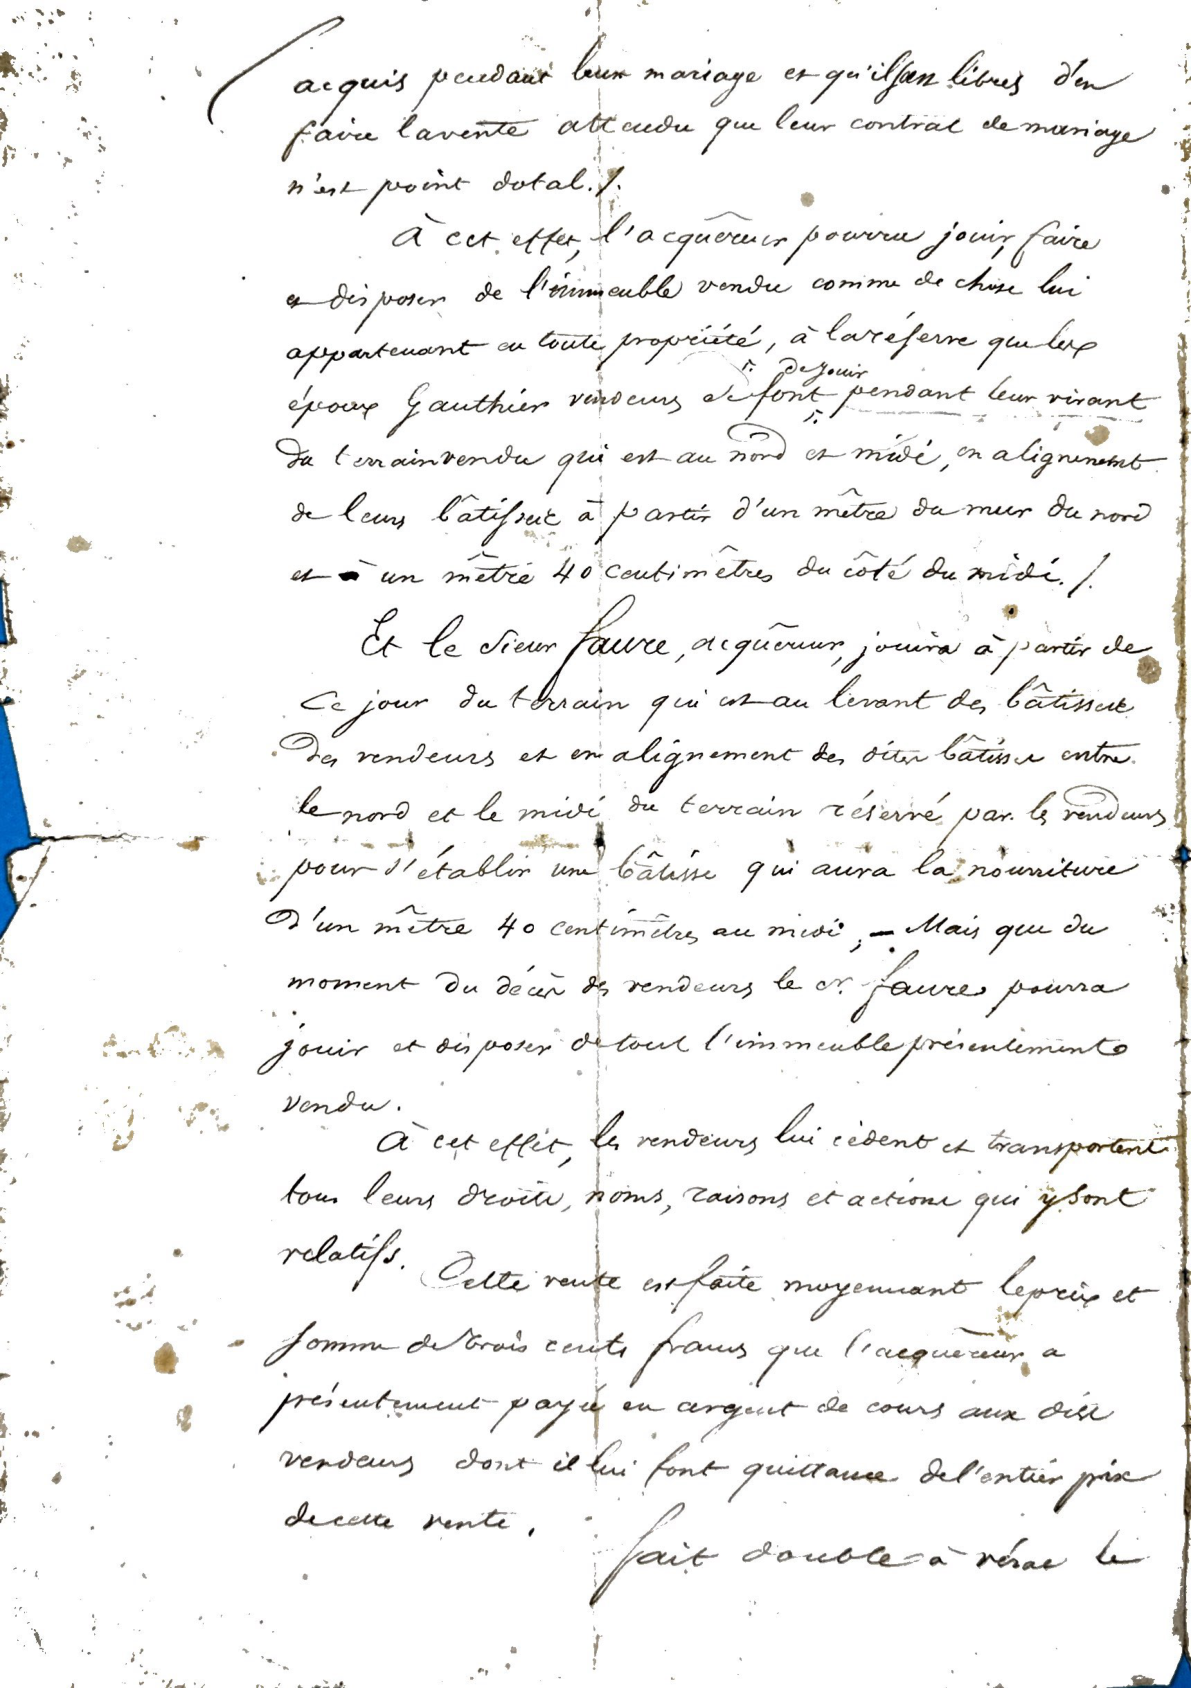 acquis pendant leur mariage et qu'ils sont libres d'en
faire la vente attendu que leur contrat de mariage
n'est point dotal./.
À cet effet, l'acquéreur pourra jouir, faire
et disposer de l'immeuble vendu comme de chose lui
appartenant en toute propriété, à la réserve que les
de jouir
époux Gauthier vendeurs se font pendant leur vivant
du terrain vendu qui est au nord et midi, en alignement
de leurs bâtisses à partir d'un mêtre du mur du nord
et à un mêtre 40 centimêtres du côté du midi./.
Et le sieur faure, acquéreur, jouira à partir de
Ce jour du terrain qui est au levant des bâtisses
des vendeurs et en alignement des dites bâtisses entre
le nord et le midi du terrain réservé par les vendeurs
pour s'établir une bâtisse qui aura la nourriture
d'un mêtre 40 centimêtres au midi, – Mais que du
moment du décès des vendeurs le sr. faure pourra
jouir et disposer de tout l'immeuble présentement
vendu.
À cet effet, les vendeurs lui cèdent et transportent
tous leurs droits, noms, raisons et actions qui y sont
relatifs.
Cette vente est faite moyennant le prix et
somme de trois cents francs que l'acquéreur a
présentement payée en argent de cours aux dits
vendeurs dont il lui font quittance de l'entier prix
de cette vente.
fait double à vérac le